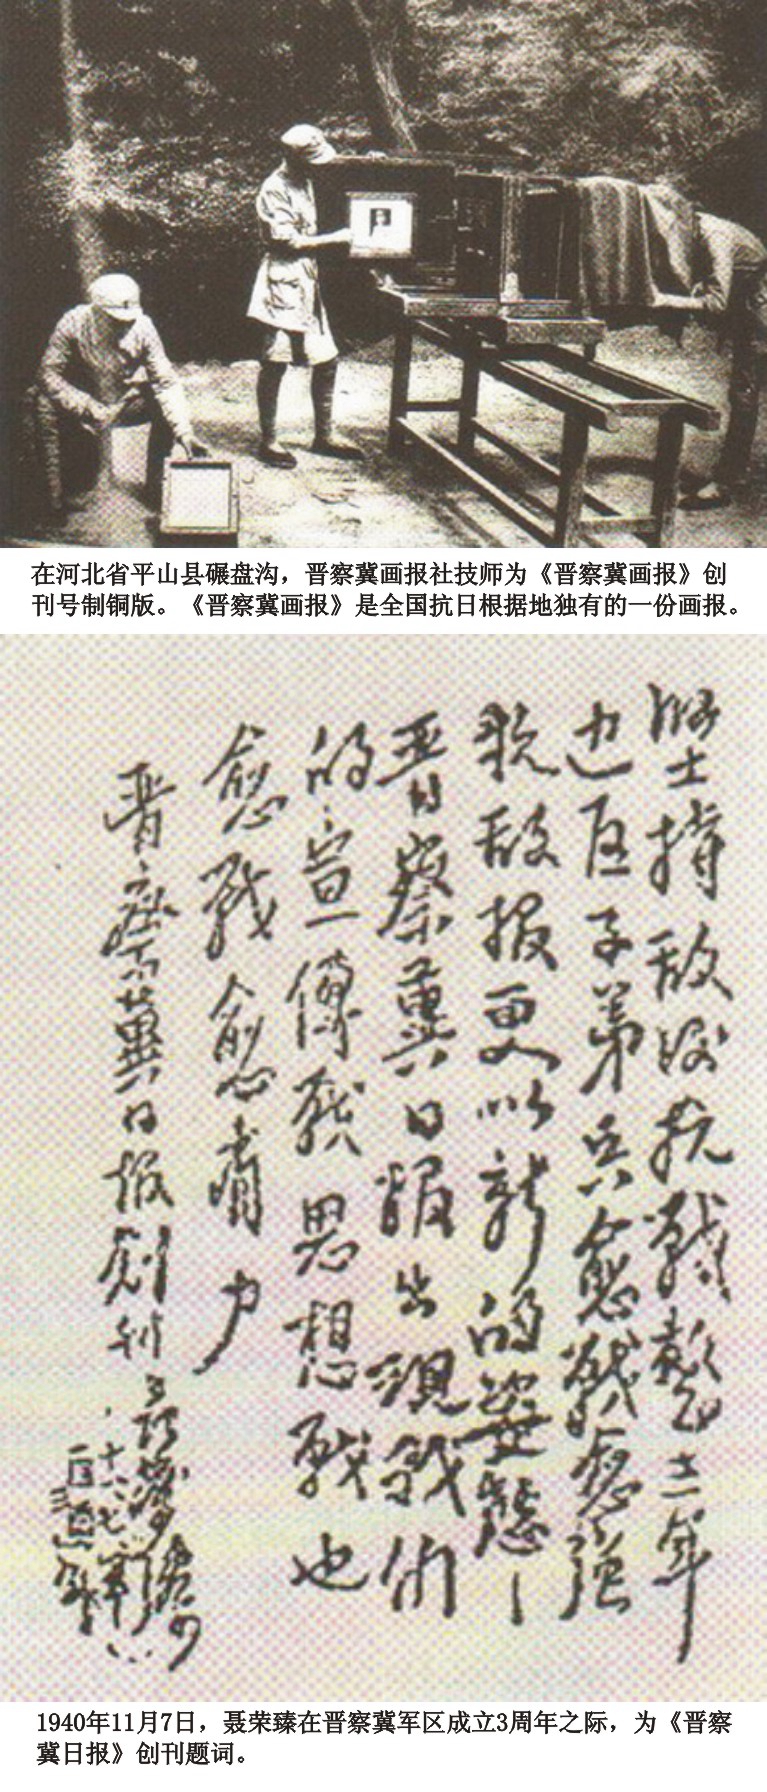 在河北省平山县碾盘沟，晋察冀画报社技师为《晋察冀画报》创
刊号制铜版。《晋察冀画报》是全国抗日根据地独有的一份画报。
堅持敌後抗戰三年
边区子弟兵愈戰愈强
抗敌报更以新的姿態—
晋察冀日报出現战術
的宣傳战思想战也
愈战愈有力
晋察冀日报創刊
1940年11月7日，聂荣臻在晋察冀军区成立3周年之际，为《晋察
冀日报》创刊题词。